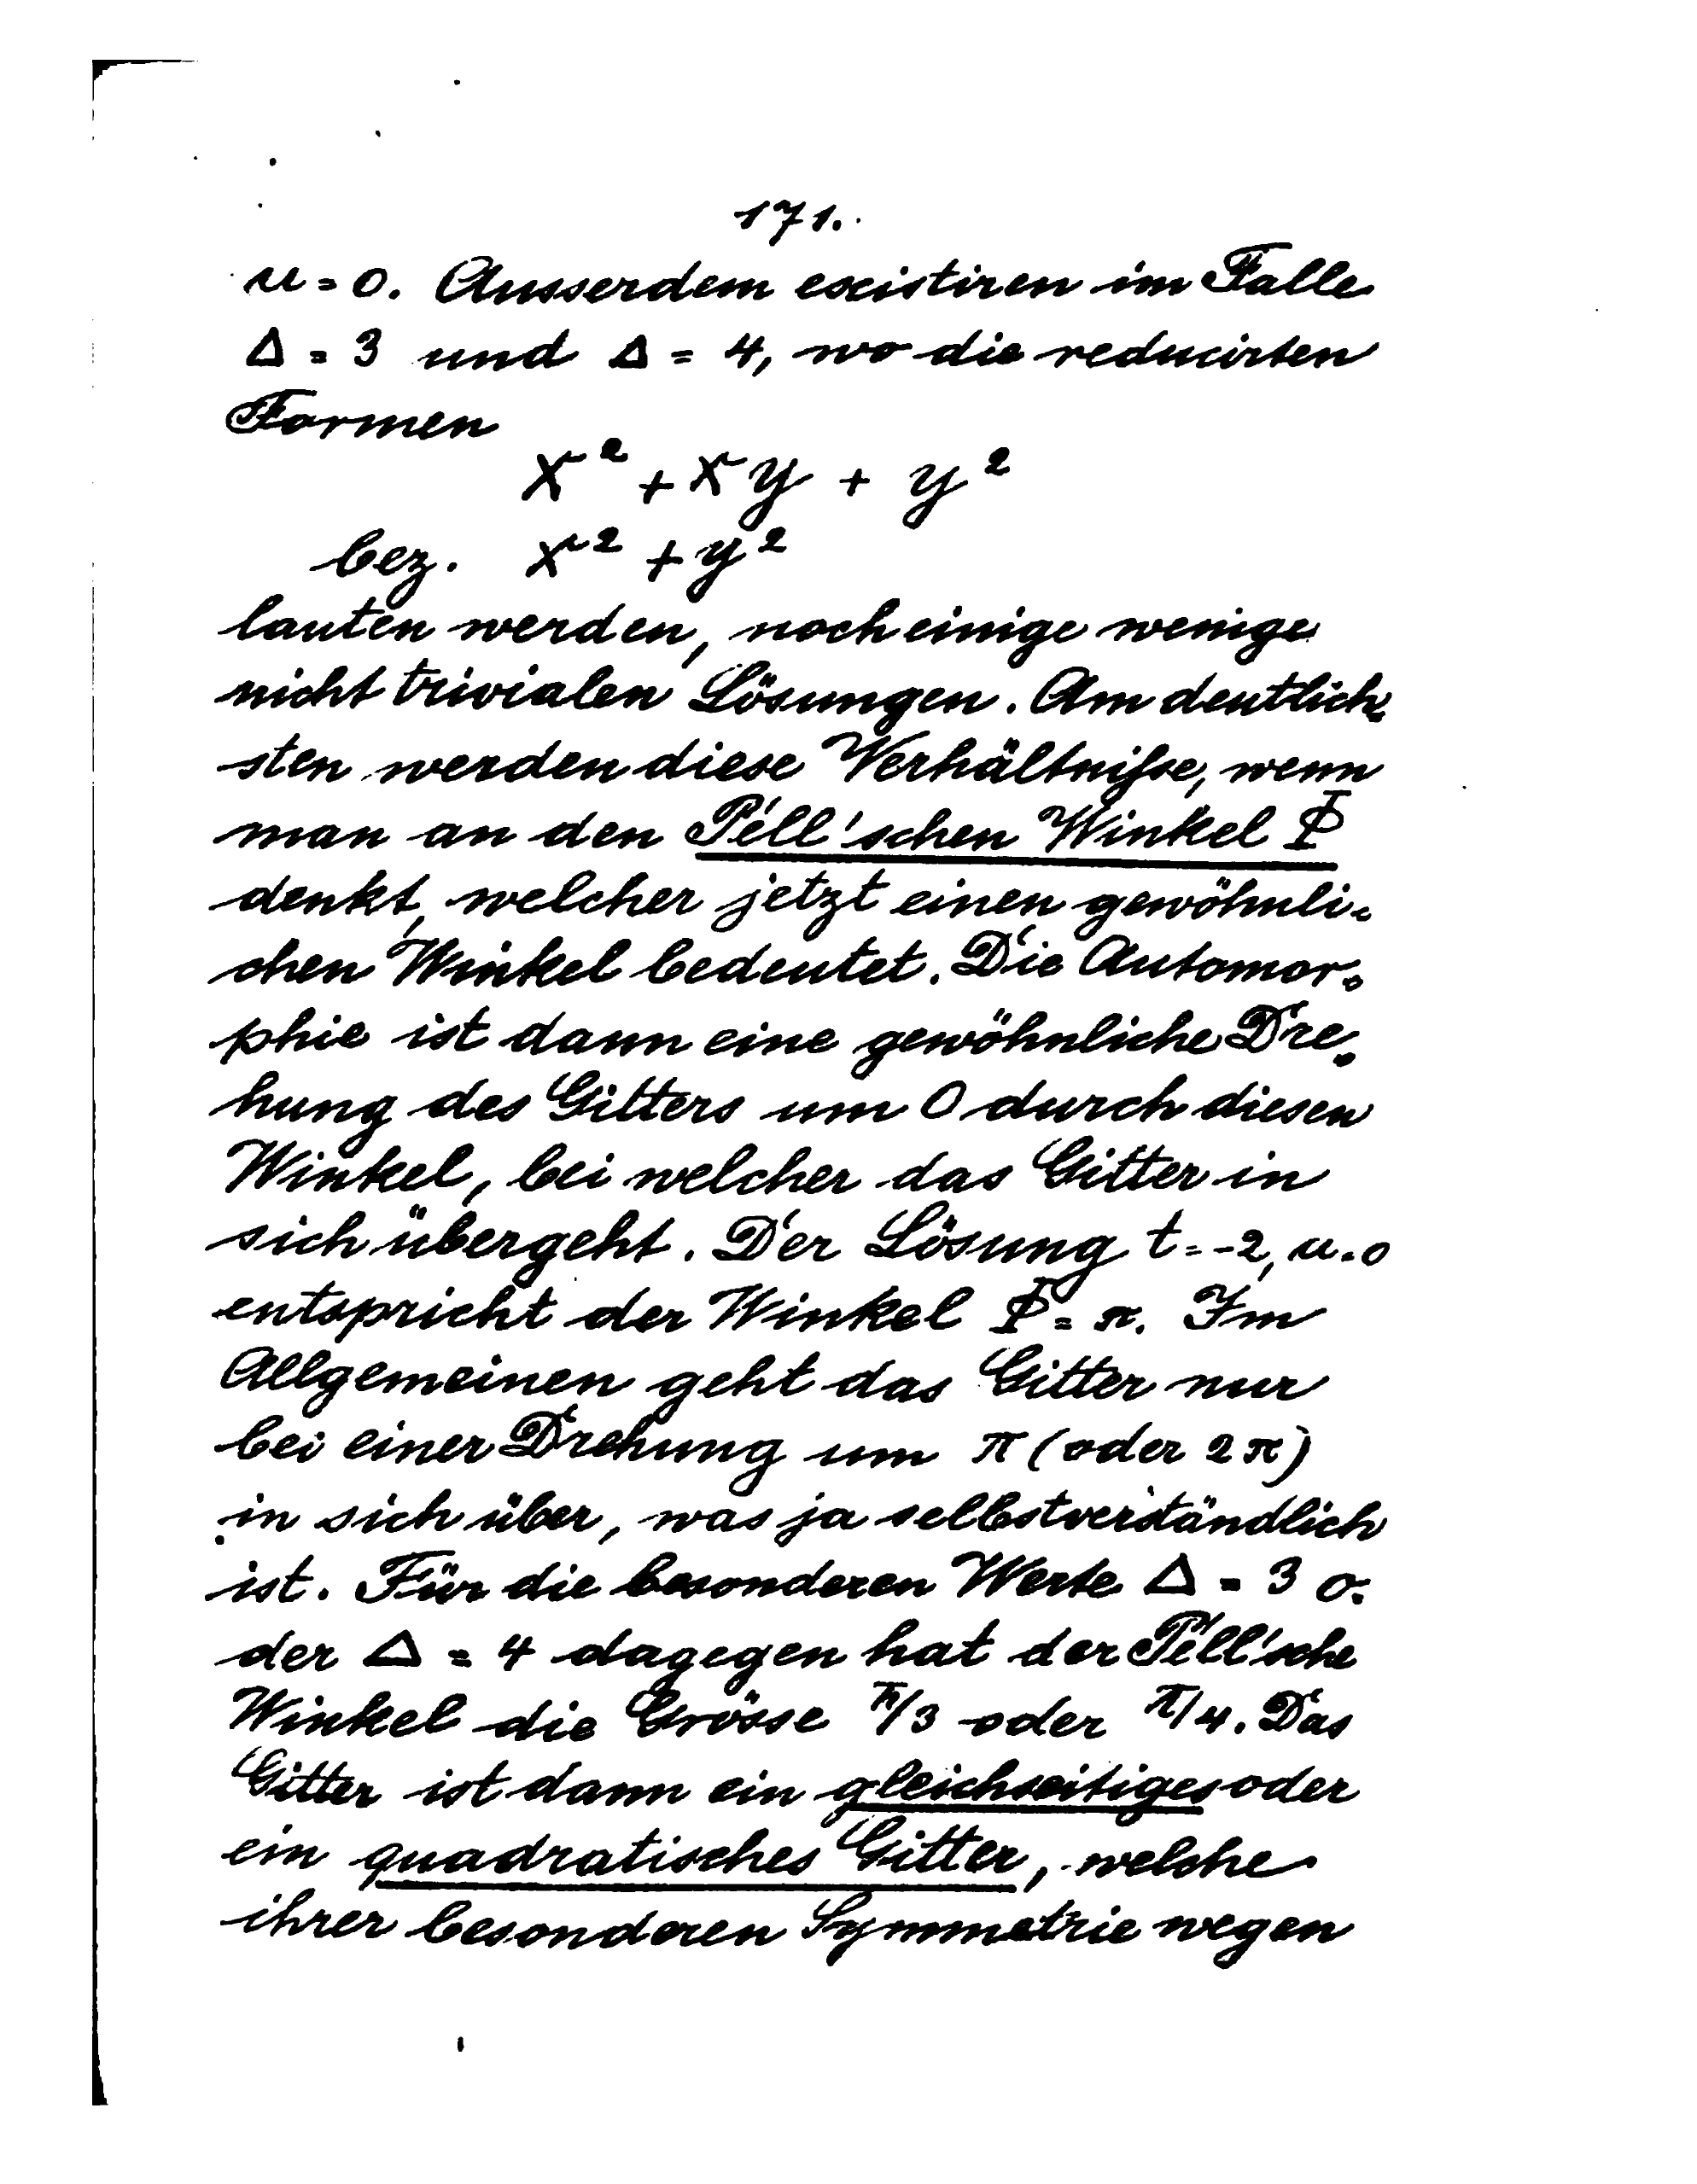 171.
u = 0. Ausserdem existiren im Falle
Δ = 3 und Δ = 4, wo die reducirten
Formen
x² + xy + y²
bez. x² + y²
lauten werden, noch einige wenige
nicht trivialen Lösungen. Am deutlich-
sten werden diese Verhältnisse, wenn
man an den Pell'schen Winkel Φ
denkt, welcher jetzt einen gewöhnli-
chen Winkel bedeutet. Die Automor-
phie ist dann eine gewöhnliche Dre-
hung des Gitters um O durch diesen
Winkel, bei welcher das Gitter in
sich übergeht. Der Lösung t = -2, u = 0
entspricht der Winkel Φ = π. Im
Allgemeinen geht das Gitter nur
bei einer Drehung um π (oder 2π)
in sich über, was ja selbstverständlich
ist. Für die besonderen Werte Δ = 3 o-
der Δ = 4 dagegen hat der Pell'sche
Winkel die Grösse π/3 oder π/4. Das
Gitter ist dann ein gleichseitiges oder
ein quadratisches Gitter, welche
ihrer besonderen Symmetrie wegen